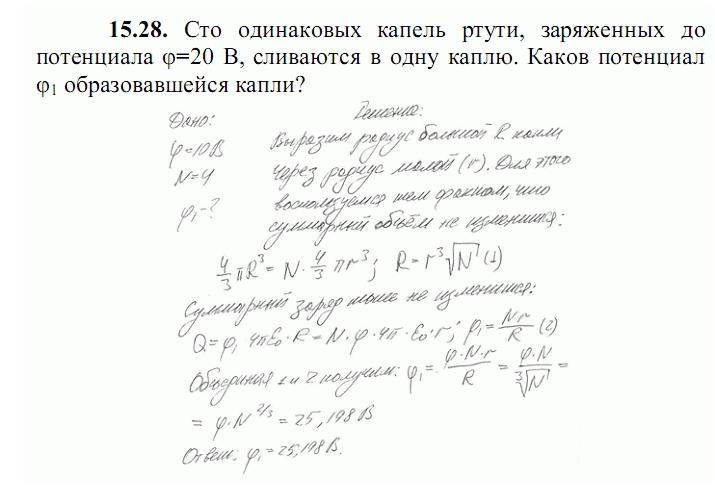 15.28. Сто одинаковых капель ртути, заряженных до
потенциала φ=20 В, сливаются в одну каплю. Каков потенциал
φ₁ образовавшейся капли?
Дано: Решение:
φ=10В Выразим радиус большой R капли
N=4 через радиус малой (r). Для этого
φ₁-? воспользуемся тем фактом, что
суммарный объём не изменился:
4/3 πR³ = N · 4/3 πr³; R = r ³√N (1)
Суммарный заряд тоже не изменился:
Q = φ₁ 4πε₀ · R = N · φ · 4π · ε₀ · r; φ₁ = Nr/R (2)
Объединяя 1 и 2 получим: φ₁ = φ·N·r/R = φ·N/³√N =
= φ·N^2/3 = 25,198 В
Ответ: φ₁ = 25,198 В.